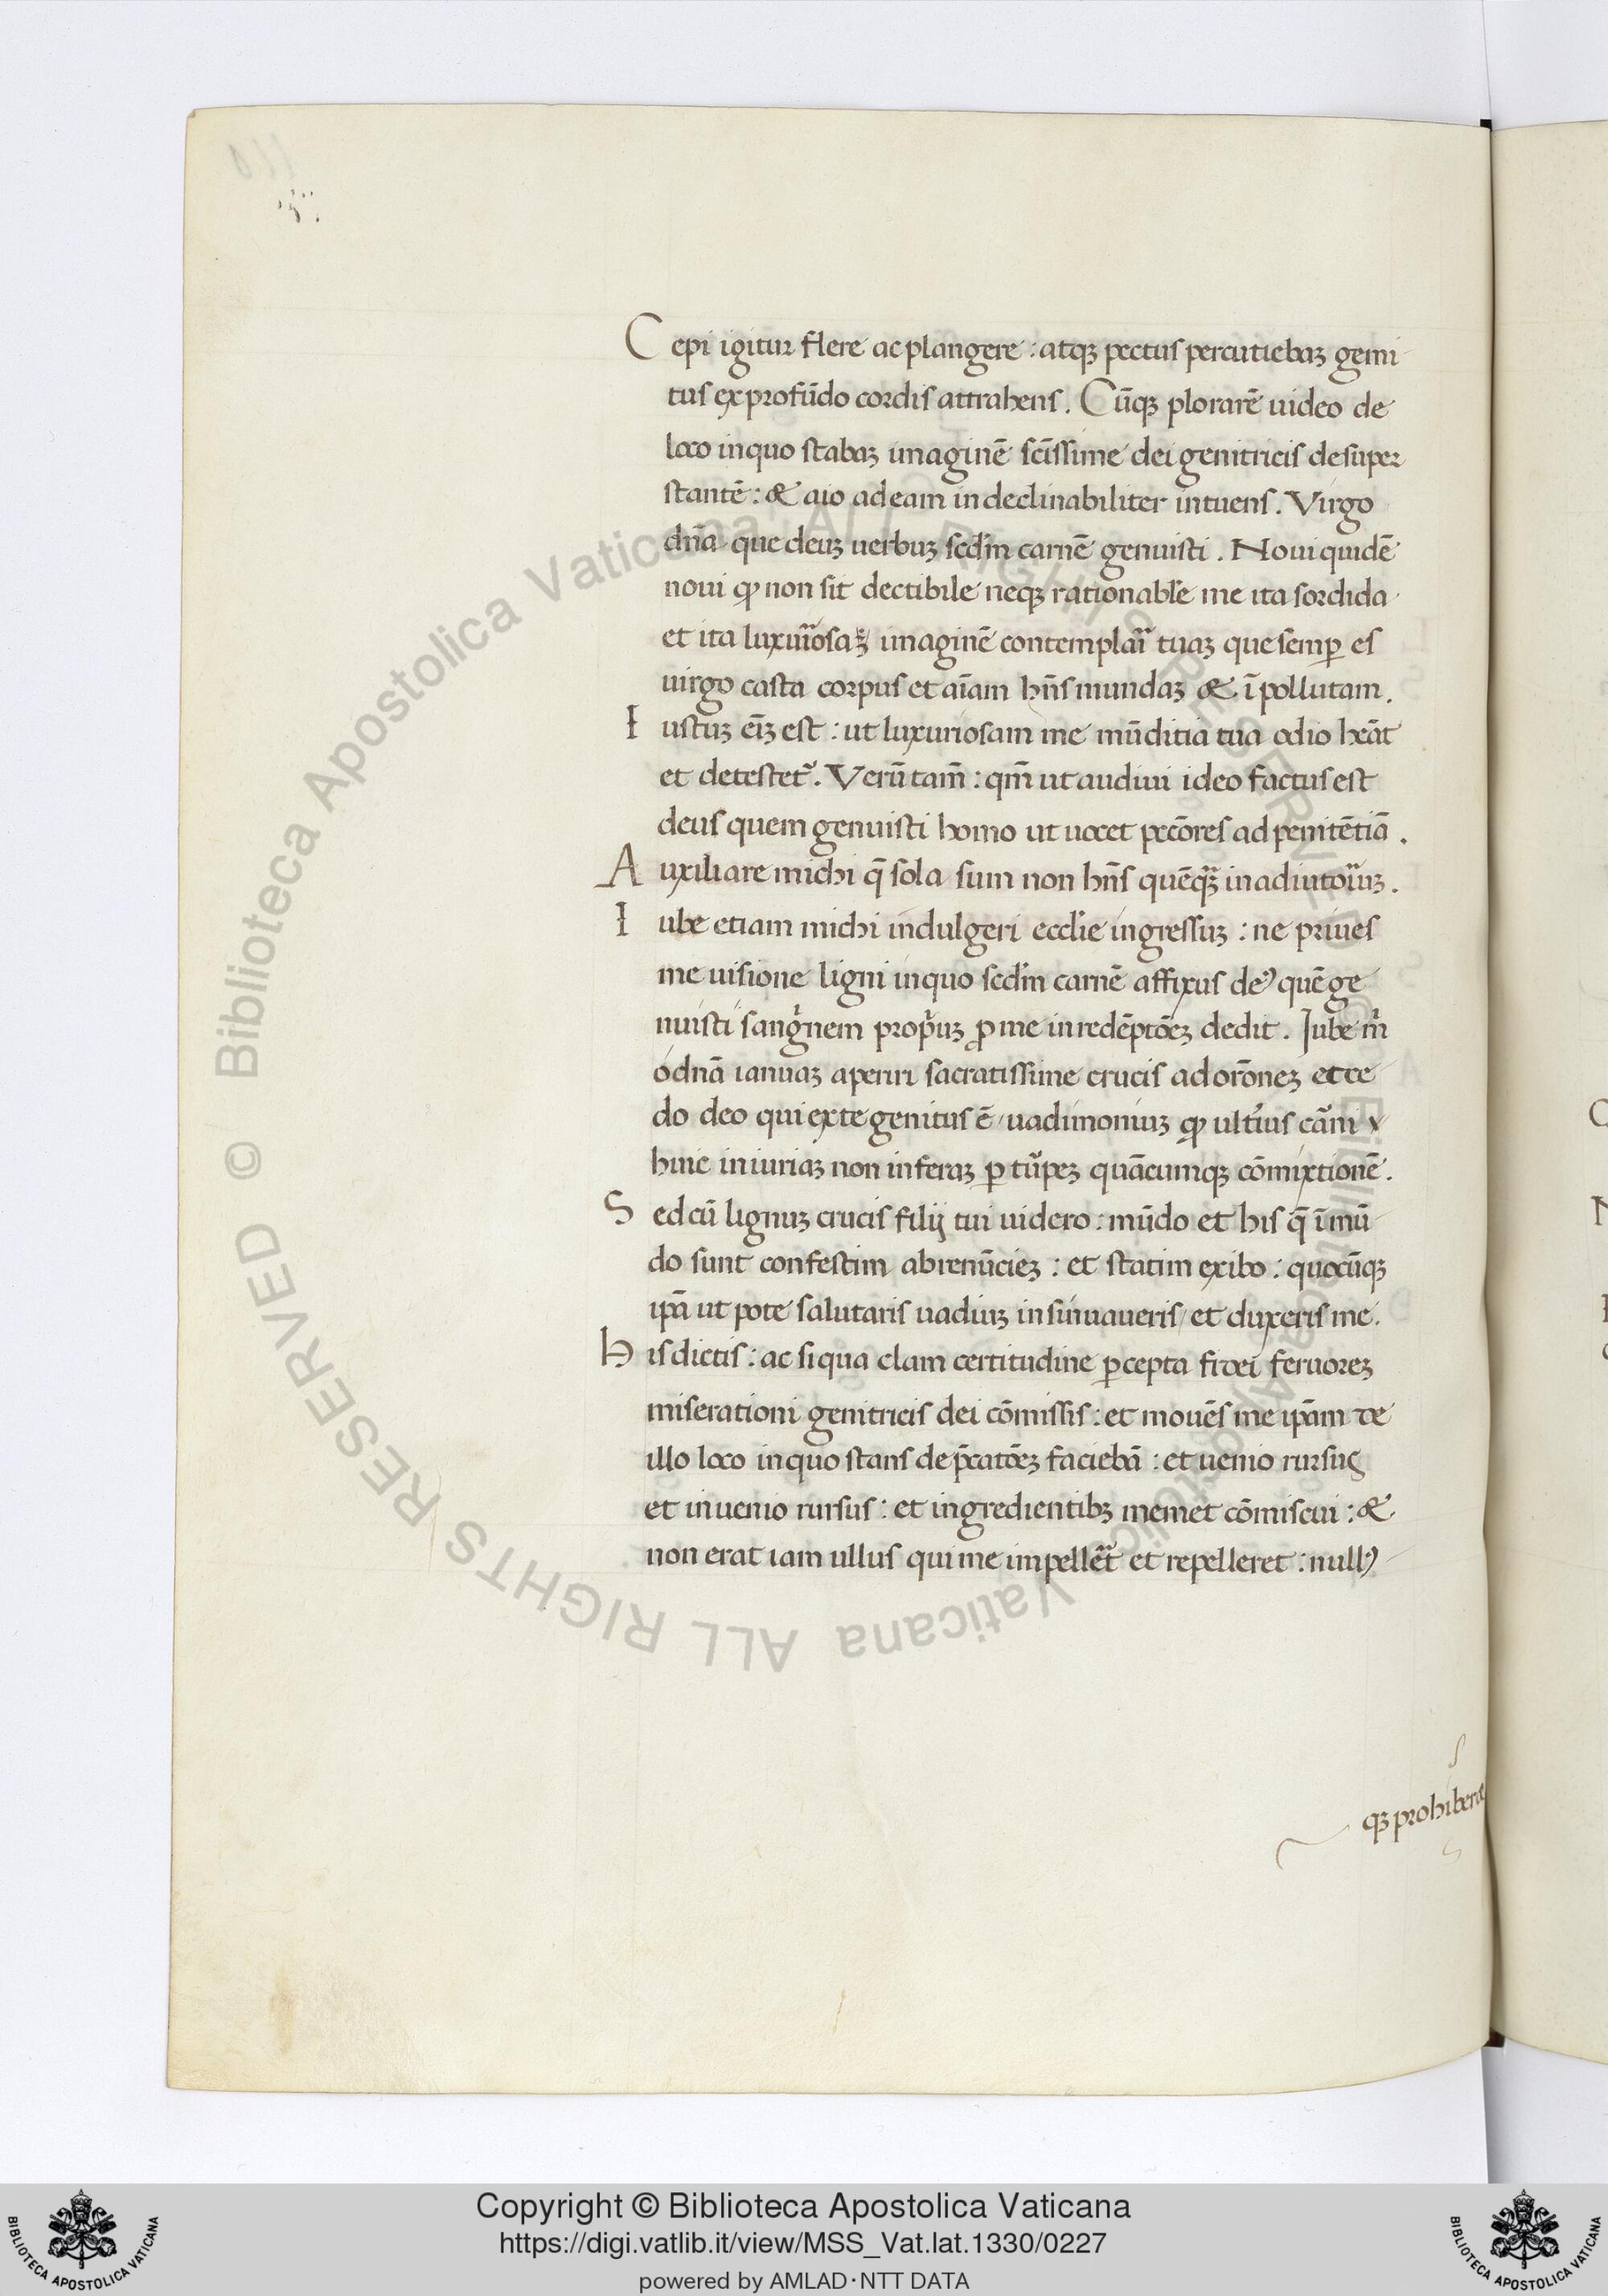 Cepi igitur flere ac plangere : atqꝫ pectus percutiebaꝫ gemi
tus ex profūdo cordis attrahens . Cūqꝫ plorarē uideo de
loco in quo stabaꝫ imaginē sc̄issime dei genitricis desuper
stantē : & aio ad eam indeclinabiliter intuens . Virgo
dn̄a que deuꝫ uerbuꝫ scdm̄ carnē genuisti . Noui quidē
noui ꝙ non sit dectibile neqꝫ rationabłe me ita sordida
et ita luxuriosaꝫ imaginē contemplari tuaꝫ que semꝑ es
uirgo casta corpus et aīam hn̄s mundaꝫ & īpollutam .
Iustuꝫ eīꝫ est : ut luxuriosam me mūditia tua odio heāt
et detestet᷑ . Verūtam̄ : qm̄ ut audiui ideo factus est
deus quem genuisti homo ut uocet pecc̄ores ad penitētiā .
Auxiliare michi q̄ sola sum non hn̄s quēqꝫ in adiutoriuꝫ .
Iube etiam michi indulgeri eccłie ingressuꝫ : ne priues
me uisione ligni in quo scdm̄ carnē affixus deꝰ quē ge
nuisti sangⁱnem propⁱuꝫ ꝓ me in redēptōeꝫ dedit . Iube mⁱ
o dn̄a ianuaꝫ aperiri sacratissime crucis ad orōneꝫ et ce
do deo qui ex te genitus ē uadimoniuꝫ ꝙ ultⁱus carni
huic iniuriaꝫ non inferaꝫ ꝑ turpeꝫ quācumqꝫ cōmixtionē .
Sed cū lignuꝫ crucis filij tui uidero : mūdo et his q̄ ī mū
do sunt confestim abrenūcieꝫ : et statim exibo : quocūqꝫ
ip̄a ut pote salutaris uadiuꝫ insinuaueris et duxeris me .
His dictis : ac si qua clam certitudine ꝑcepta fidei feruoreꝫ
miserationi genitricis dei cōmissis : et mouēs me ip̄am de
illo loco in quo stans dep̄catōeꝫ faciebā : et uenio rursus
et inuenio rursus : et ingredientibꝫ memet cōmiscui : &
non erat iam ullus qui me impelleret et repelleret : nullꝰ
qꝫ prohibere
Copyright © Biblioteca Apostolica Vaticana
https://digi.vatlib.it/view/MSS_Vat.lat.1330/0227
powered by AMLAD·NTT DATA